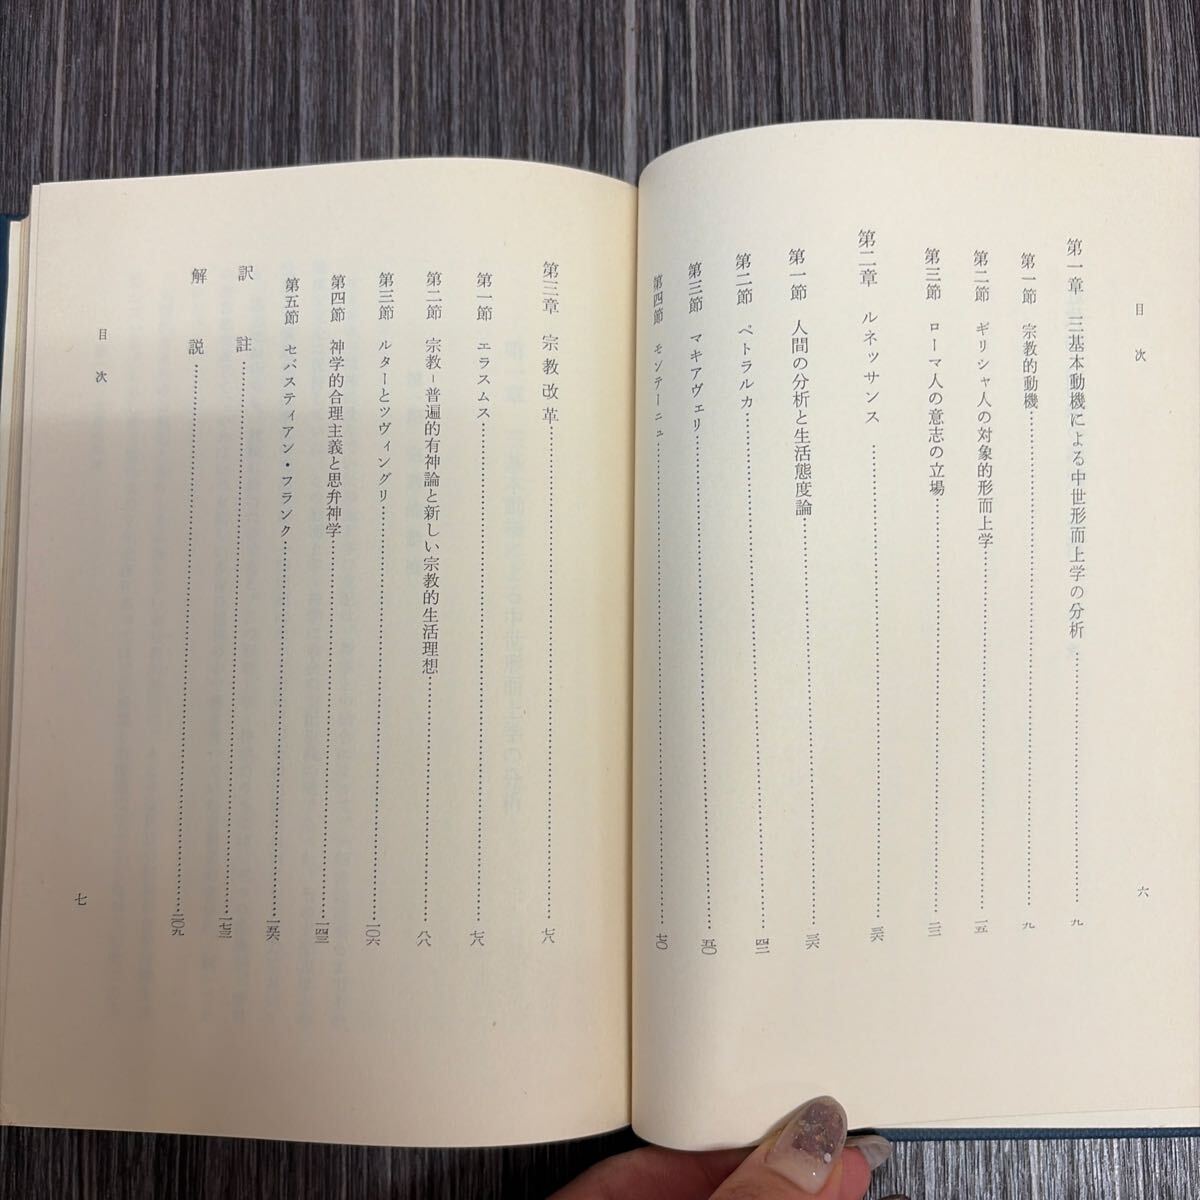 目次
第一章 三基本動機による中世形而上学の分析……九
第一節 宗教的動機……九
第二節 ギリシャ人の対象的形而上学……一五
第三節 ローマ人の意志の立場……二二
第二章 ルネッサンス……三六
第一節 人間の分析と生活態度論……三六
第二節 ペトラルカ……四二
第三節 マキアヴェリ……五〇
第四節 モンテーニュ……七〇
六
第三章 宗教改革……七八
第一節 エラスムス……七八
第二節 宗教=普遍的有神論と新しい宗教的生活理想……八八
第三節 ルターとツヴィングリ……一〇六
第四節 神学的合理主義と思弁神学……一四三
第五節 セバスティアン・フランク……一五六
訳註……一七三
解説……二〇九
目次
七